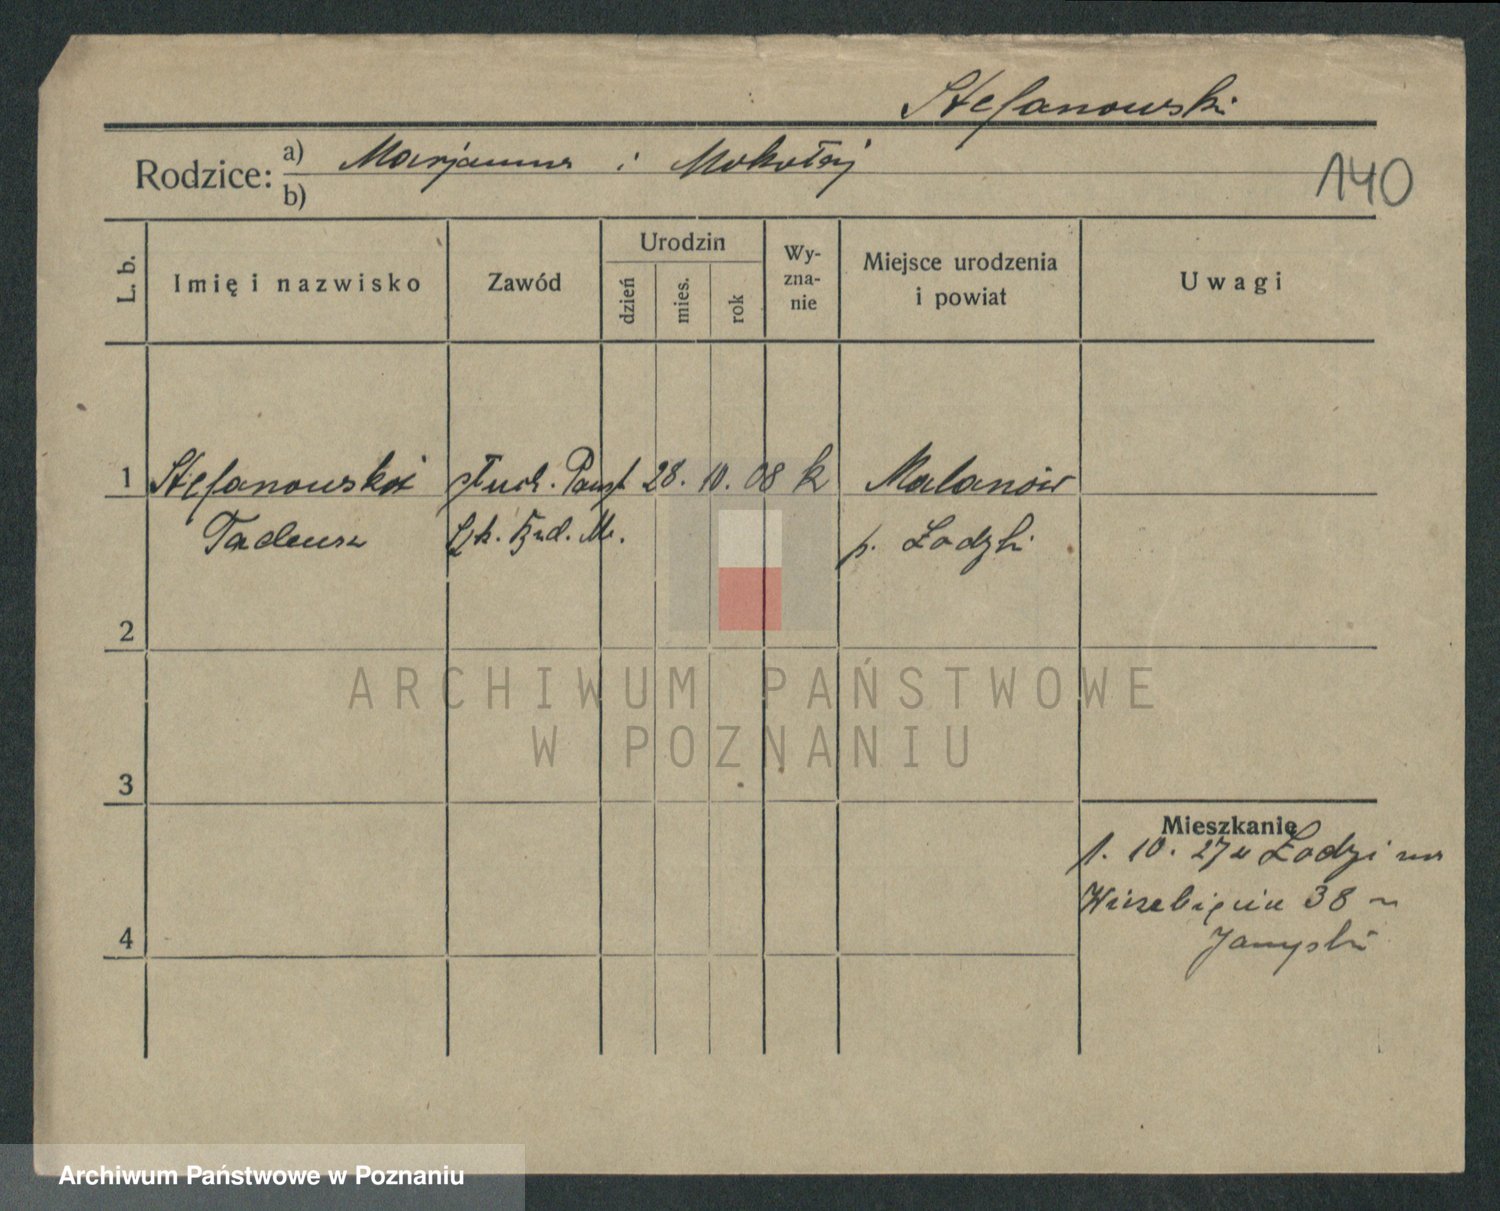 Stefanowski
Rodzice: a) Marjanna i Mokołaj
b)
140
L. b.
Imię i nazwisko
Zawód
Urodzin
dzień
mies.
rok
Wy-
zna-
nie
Miejsce urodzenia
i powiat
Uwagi
1 Stefanowski słuch. Państ 28. 10. 08 k Malanów
Tadeusz
p. Łodzki
2
ARCHIWUM PAŃSTWOWE
W POZNANIU
3
Mieszkanie
1. 10. 27 u Łodzi
38
4
Archiwum Państwowe w Poznaniu